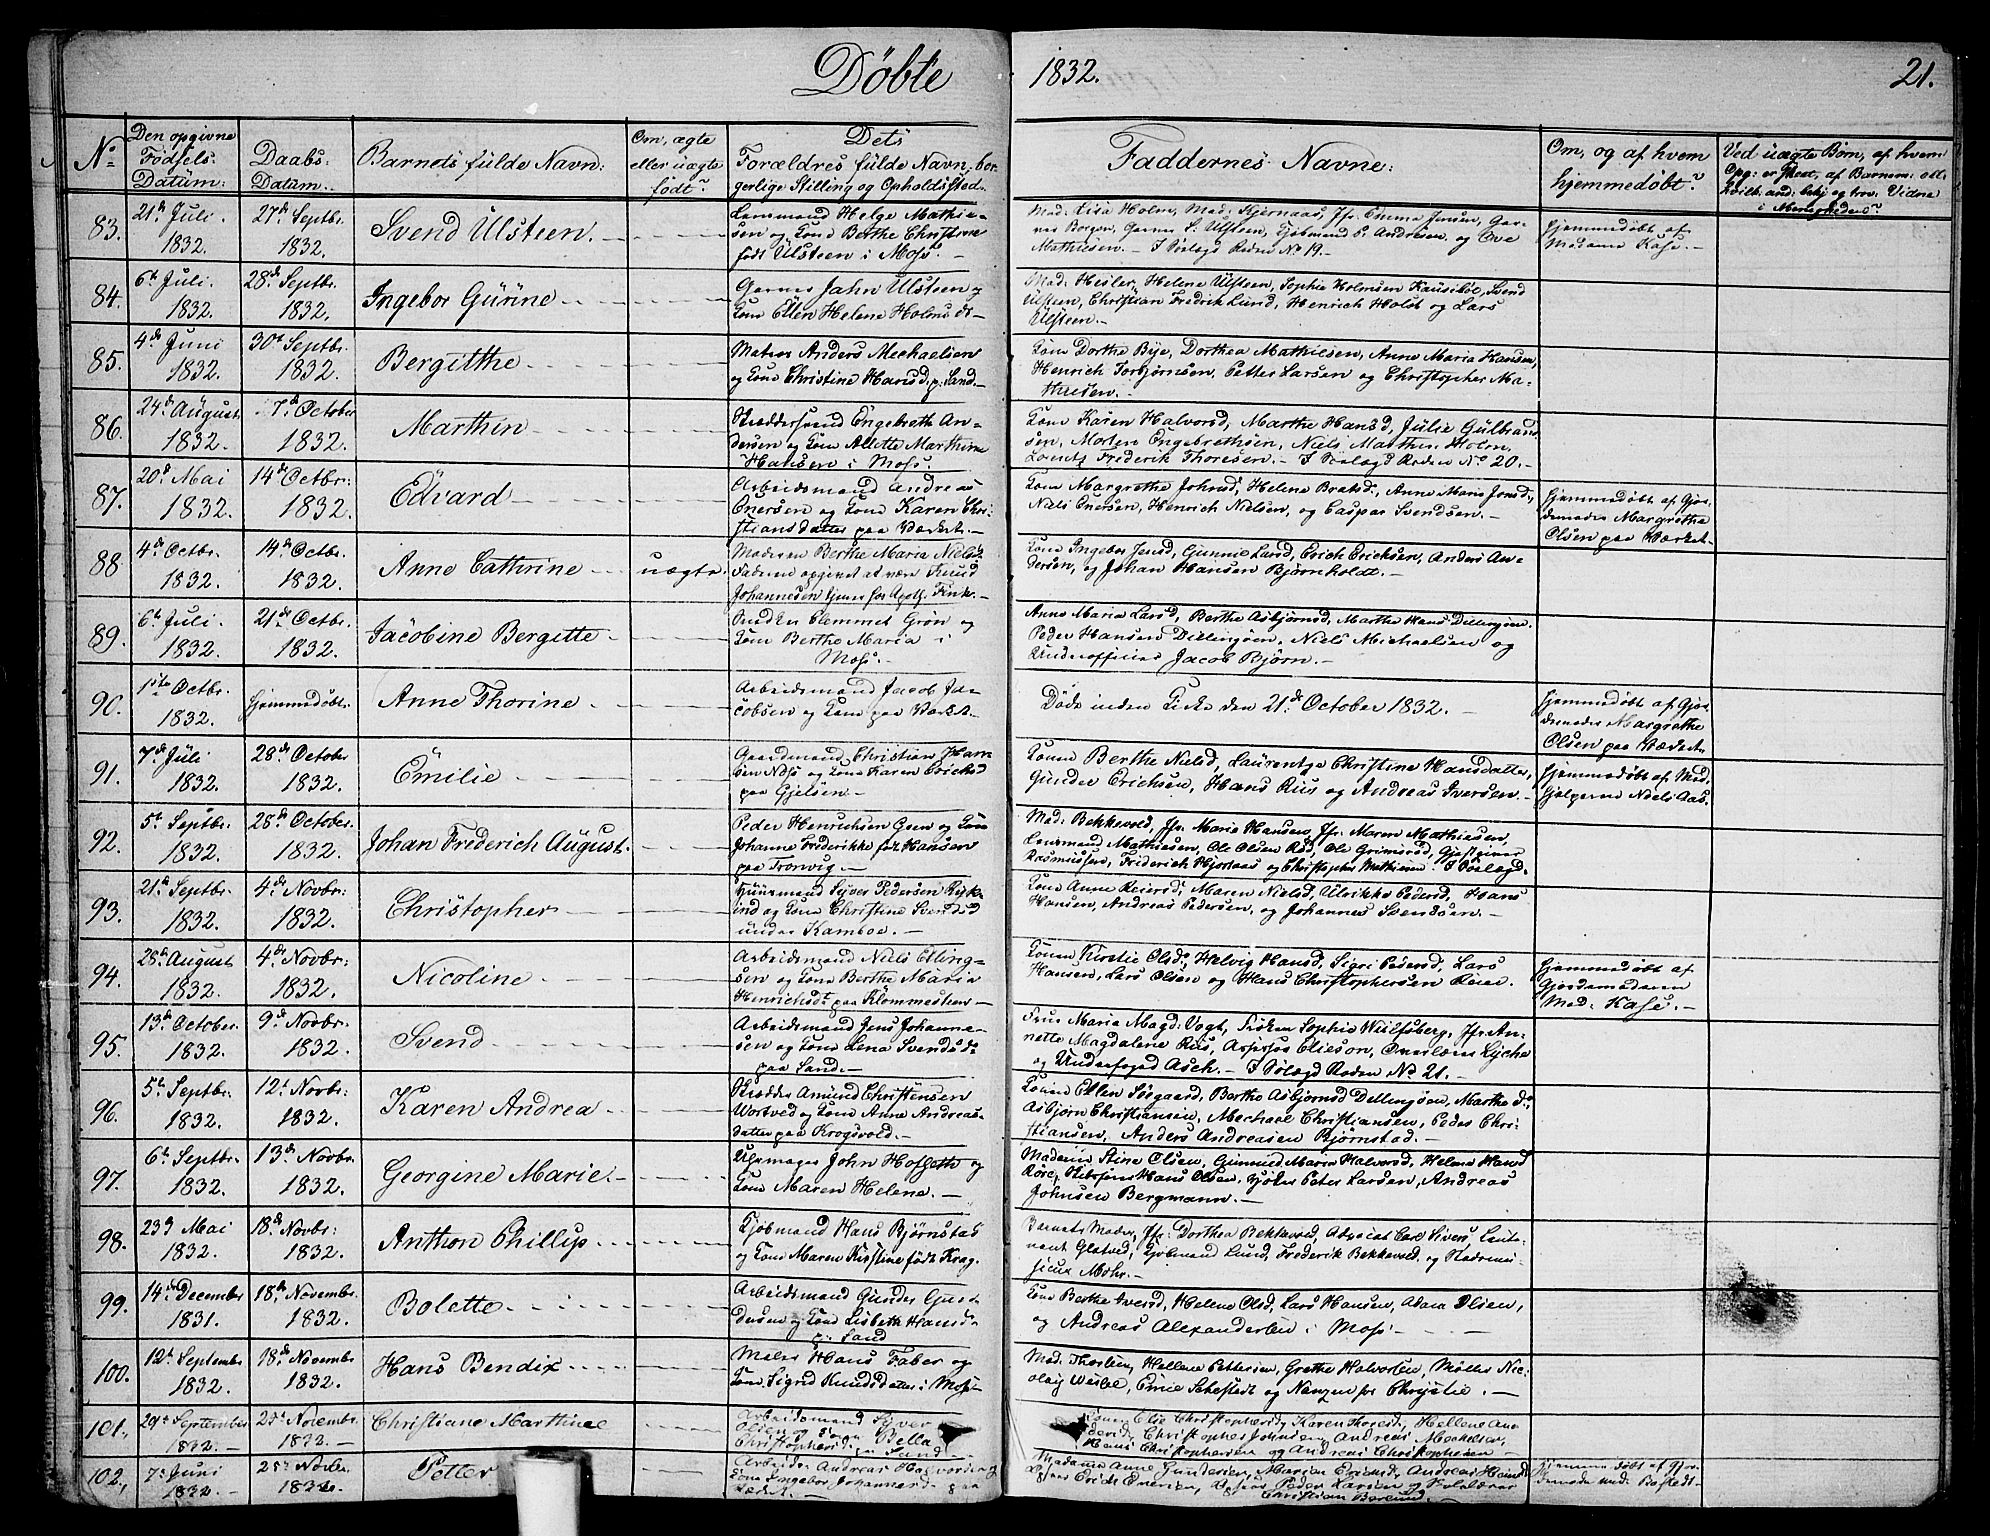 Döbte 1832. 21.
No
Den opgivne Födsels Datum:
Daabs: Datum.
Barnets fulde Navn:
Om, ægte eller uægte födt?
Dets Forældres fulde Navn, borgerlige Stilling og Opholdssted.
Faddernes Navne:
Om, og af hvem hjemmedöbt?
Ved uægte Börn, af hvem
83. 21de Juli 1832. 27de Septbr. 1832. Svend Ulsteen.
Lensmand Helge Mathie-
sen og Kone Berthe Christine
födt Ulsteen i Moss.
Mad: Lisa Holm, Mad: Kjernaas, Jfr. Emma Jensen, Gar-
ver Borgen, Garver S. Ulsteen, Kjöbmand P. Andresen og Ove
Mathiesen. – I Sölagd Roden No 19. –
Hjemmedöbt af
Madame Kase. –
84. 6te Juli 1832. 28de Septbr. 1832. Ingebor Gurine
Garver Jahn Ulsteen og
Kone Ellen Helene Holms
Mad: Hesler, Helene Ulsteen, Sophie
Ulsteen, Christian Fredrik Lund, Henrich Holst og Lars
Ulsteen. –
85. 4de Juni 1832. 30te Septbr. 1832. Bergitthe
Matros Anders Mechaelsen
og Kone Christine Hansd: p: Sand. –
Kone Dorthe Bye, Dorthea Mathiesen, Anne Maria Hansen,
Henrich Torbjörnsen, Petter Larsen og Christopher Ma-
thiesen. –
86. 24de August 1832. 7de October 1832. Marthin
Skræddersvend Engebreth An-
dersen og Kone Allette Marthine
Hansen i Moss.
Kone Karen Halvorsd, Marthe Hansd, Julie Gulbrand-
sen, Morten Engebrethsen, Niels Marthin Holm,
Lorents Frederik Thoresen. – I Sölagd Roden No 20. –
87. 20de Mai 1832. 14de Octbr: 1832. Edvard
Arbeidsmand Andreas
Enersen og Kone Karen Chri-
stiansdatter paa Værket. –
Kone Margrethe Johnsd, Helene Bratsd:, Anne Marie Jonsd:,
Niels Enersen, Henrich Nielsen, og Caspar Svendsen. –
Hjemmedöbt af Gjor-
demoder Margrethe
Olsen paa Værket. –
88. 4de Octbr. 1832. 14de Octbr. 1832. Anne Cathrine uægte.
Moderen Berthe Maria Nielsd
Faderen opgivet at være Knud
Johannesen tjener for Apoth. Fink. –
Kone Ingebor Jensd, Gunnie Larsd, Erich Ericksen, Anders An-
dersen, og Johan Hansen Björnholdt. –
89. 6te Juli 1832. 21de Octbr. 1832. Jacobine Bergitte
Snedker Clemmet Grön og
Kone Berthe Maria i
Moss. –
Anne Maria Larsd, Berthe Asbjörnsd, Marthe Hans Dillingöen
Peder Hansen Dillingöen, Niels Michaelsen og
Underofficier Jacob Björn. –
90. 1ste Octbr. 1832. Hjemmedöbt. Anne Thorine
Arbeidsmand Jacob Ja-
cobsen og Kone paa Værket. –
Döde inden Kirke den 21de October 1832. –
Hjemmedöbt af Gjor-
demoder Margrethe
Olsen paa Værket.
91. 7de Juli 1832. 28de October 1832. Emilie
Gaardmand Christian Han-
sen Næs og Kone Karen Ericksd
paa Gjelsen. –
Konen Berthe Nielsd, Laurentze Christine Hansdatter,
Gunder Ericksen, Hans Rius og Andreas Iversen. –
Hjemmedöbt af Med-
hjelperne Niels Aas.
92. 5te Septbr. 1832. 28de October. 1832. Johan Frederich August.
Peder Henrichsen Geen og Kone
Johanne Frederikke föd Hansen
paa Tronvig. –
Mad: Bekkevold, Jfr. Marie Hansen, Jfr. Maren Mathiesen,
Lensmand Mathiesen, Ole Olsen Röd, Ole Grimsröd, Gjestgiver
Rasmussen, Friderich Hjortaas og Christopher Mathiesen. I Sölagd.
93. 21de Septbr. 1832. 4de Novbr: 1832. Christopher
Huusmand Syver Pedersen Ryk-
ind og Kone Christine Svendsd
under Kamboe. –
Kone Anne Reiersd:, Maren Nielsd, Ulrikke Pedersd, Hans
Hansen, Andreas Pedersen, og Johannes Svendsen. –
94. 28de August 1832. 4de Novbr: 1832. Nicoline
Arbeidsmand Niels Elling-
sen og Kone Berthe Maria
Henrichsdt: paa Klommesteen –
Konen Kirstie Olsd:, Helvig Hansd, Sigri Pedersd, Lars
Hansen, Lars Olsen og Hans Christophersen Reier.
Hjemmedöbt af
Gjordemoderen
Mad: Kase. –
95. 13de October. 1832. 9de Novbr: 1832. Svend
Arbeidsmand Jens Johanne-
sen og Kone Lena Svendsd:
paa Sand. –
Frue Maria Magd: Vogt, Fröken Sophie Wulfsberg, Jfr. An-
nette Magdalene Rus, Assessor Elieson, Overlærer Lyche
og Underfoged Asch. – I Sölagd Roden No 21. –
96. 5te Septbr. 1832. 12te Novbr: 1832. Karen Andrea
Skrædder Amund Christensen
Wortved og Kone Anne Andreas-
datter paa Krogsvold. –
Konen Ellen Sögaard, Berthe Asbjörnsd Dillingöen, Marthe do,
Asbjörn Christiansen, Mechael Christiansen, Peder Chri-
stiansen, Anders Andreasen Björnstad. –
97. 6te Septbr. 1832. 13de Novbr. 1832. Georgine Marie.
Uhrmager John Hofseth og
Kone Maren Helene. –
Maderin Stine Olsen, Gunnild Maria Halvorsd, Helena Hansd
Röre, Hans Olsen, Peter Larsen, Andreas
Johnsen Bergmann. –
98. 23de Mai 1832. 18de Novbr: 1832. Anthon Phillip
Kjöbmand Hans Björnstad
og Kone Maren Kirstine födt Krag.
Barnets Moder, Jfr: Dorthea Bekkevold, Advocat Carl Sivers, Leut-
nant Glatved, Kjöbmand Lund, Frederik Bekkevold, og Stadsmu-
sicus Mohr. –
99. 14de December 1831. 18de Novembr. 1832. Bolette
Arbeidsmand Gunder Gun-
dersen og Kone Lisbeth Hansd:
p: Sand
Kone Berthe Iversd, Helene Olsd, Lars Hansen, Adam Olsen,
og Andreas Alexandersen i Moss. –
100. 12te Septembr 1832. 18de Novembr 1832. Hans Bendix
Maler Hans Faber og
Kone Sigrid Knudsdatter i Moss
Mad: Thorsen, Hellene Pettersen, Grethe Halvorsen, Möller Nic-
olaj Wesbel, Ernie Sehestedt og Nenzen for Chrystie. –
101. 29de September 1832. 25de Novembr. 1832. Christiane Marthine
Arbeidsmand Syver
Olsen og Kone Bella
Christophersd: p: Sand
Konen Elie Christophersd, Karen Thoresd, Hellene An-
dersd, Christopher Johnsen, Andreas Mechelsen,
Hans Christophersen og Andreas Christophersen.
102. 7de Juni 1832. 25de Novbr. 1832. Petter
Arbeider Andreas Halvorsen og
Kone Ingebor Johannesd: paa
Værket. –
Madame Anne Gundersen, Marien Ericksd, Andreas Hansen
Erick Enersen, Peder Larsen og
Christian Berlund. –
Hjemmedöbt af Gjor-
demoder